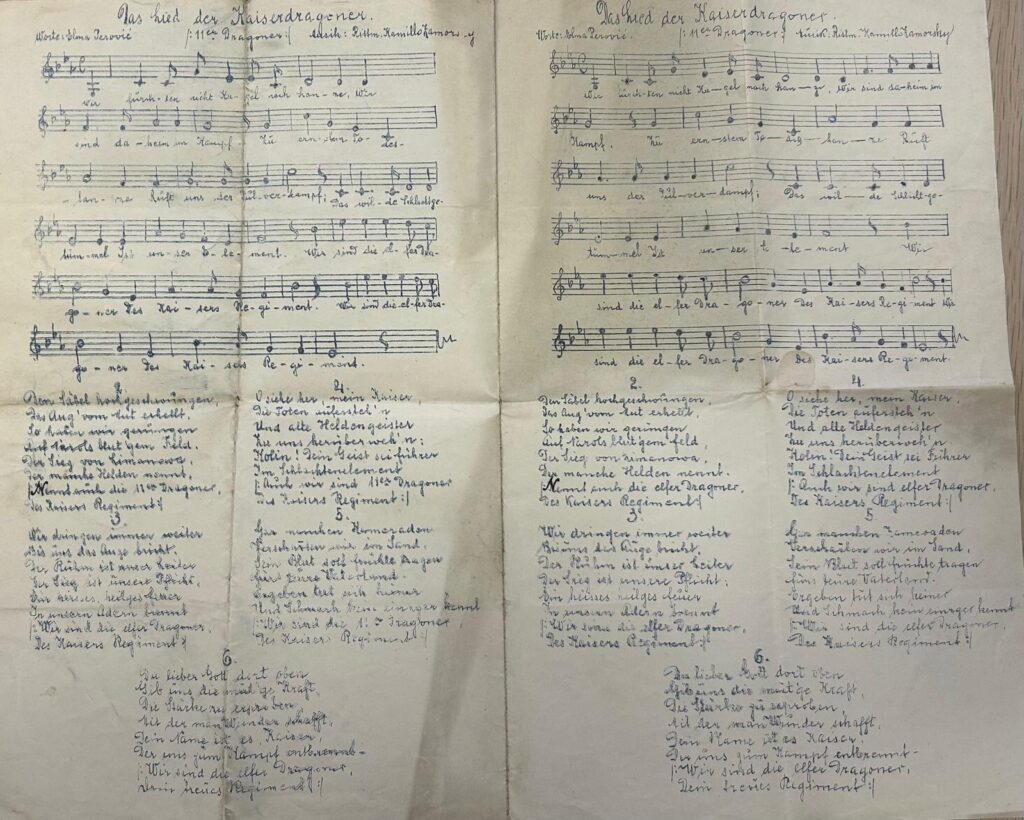 Das Lied der Kaiserdragoner.
Worte: Irma Perović /:11er Dragoner:/ Musik: Rittm. Kamillo Zamorsky
Wir fürch-ten nicht Ku-gel noch han-ze, Wir
sind da-heim im Kampf. Zu ern-sten To-des-
tan-ze Ruft uns der Pul-ver-dampf; Das wil-de Schlachtge-
tüm-mel Ist un-ser E-le-ment. Wir sind die el-fer Dra-
go-ner Des Kai-sers Re-gi-ment. Wir sind die el-fer Dra-
go-ner Des Kai-sers Re-gi-ment.
2.
Den Säbel hochgeschwungen,
Das Aug' vom Mut erhellt,
So haben wir gerungen
Auf Narols blut'gem Feld,
Der Sieg von Limanowa,
Der manche Helden nennt,
/:Nennt auch die 11er Dragoner,
Des Kaisers Regiment:/
3.
Wir dringen immer weiter
Bis uns das Auge bricht,
Der Ruhm ist unser Leiter
Der Sieg ist unsere Pflicht,
Ein heisses, heiliges Feuer
In unsern Adern brennt
/:Wir sind die elfer Dragoner,
Des Kaisers Regiment:/
4.
O siehe her, mein Kaiser,
Die Toten aufersteh'n
Und alte Heldengeister
Zu uns herüberweh'n;
Kolin! Dein Geist sei Führer
Im Schlachtenelement
/:Auch wir sind 11er Dragoner
Des Kaisers Regiment:/
5.
Gar manchen Kameraden
Verscharren wir im Sand,
Sein Blut soll Früchte tragen
Fürs teure Vaterland.
Ergeben tut sich keiner
Und Schmach kein einz'ger kennt
/:Wir sind die 11er Dragoner
Des Kaisers Regiment:/
6.
Du lieber Gott dort oben
Gib uns die mut'ge Kraft,
Die Stärke zu erproben
Mit der man Wunder schafft,
Dein Name ist es, Kaiser,
Der uns zum Kampf entbrennt-
/:Wir sind die elfer Dragoner,
Dein treues Regiment:/
Das Lied der Kaiserdragoner.
Worte: Irma Perović /:11er Dragoner:/ Musik: Rittm. Kamillo Zamorsky
Wir fürch-ten nicht Ku-gel noch han-ze, Wir sind da-heim im
Kampf. Zu ern-stem To-des-tan-ze Ruft
uns der Pul-ver-dampf; Das wil-de Schlacht-ge-
tüm-mel Ist un-ser E-le-ment Wir
sind die el-fer Dra-go-ner Des Kai-sers Re-gi-ment Wir
sind die el-fer Dra-go-ner Des Kai-sers Re-gi-ment.
2.
Den Säbel hochgeschwungen,
Das Aug' vom Mut erhellt,
So haben wir gerungen
Auf Narols blut'gem Feld,
Der Sieg von Limanowa,
Der manche Helden nennt.
/:Nennt auch die elfer Dragoner,
Des Kaisers Regiment:/
3.
Wir dringen immer weiter
Bis uns das Auge bricht,
Der Ruhm ist unser Leiter
Der Sieg ist unsere Pflicht;
Ein heisses heilges Feuer
In unsern Adern brennt
/:Wir sind die elfer Dragoner,
Des Kaisers Regiment:/
4.
O siehe her, mein Kaiser,
Die Toten aufersteh'n
Und alte Heldengeister
Zu uns herüberweh'n
Kolin! Dein Geist sei Führer
Im Schlachtenelement
/:Auch wir sind elfer Dragoner,
Des Kaisers Regiment:/
5.
Gar manchen Kameraden
Verscharren wir im Sand,
Sein Blut soll Früchte tragen
Fürs teure Vaterland.
Ergeben tut sich keiner
Und Schmach kein einz'ger kennt
/:Wir sind die elfer Dragoner,
Des Kaisers Regiment:/
6.
Du lieber Gott dort oben
Gib uns die mut'ge Kraft,
Die Stärke zu erproben,
Mit der man Wunder schafft,
Dein Name ist es Kaiser
Der uns zum Kampf entbrennt-
/:Wir sind die elfer Dragoner,
Dein treues Regiment:/